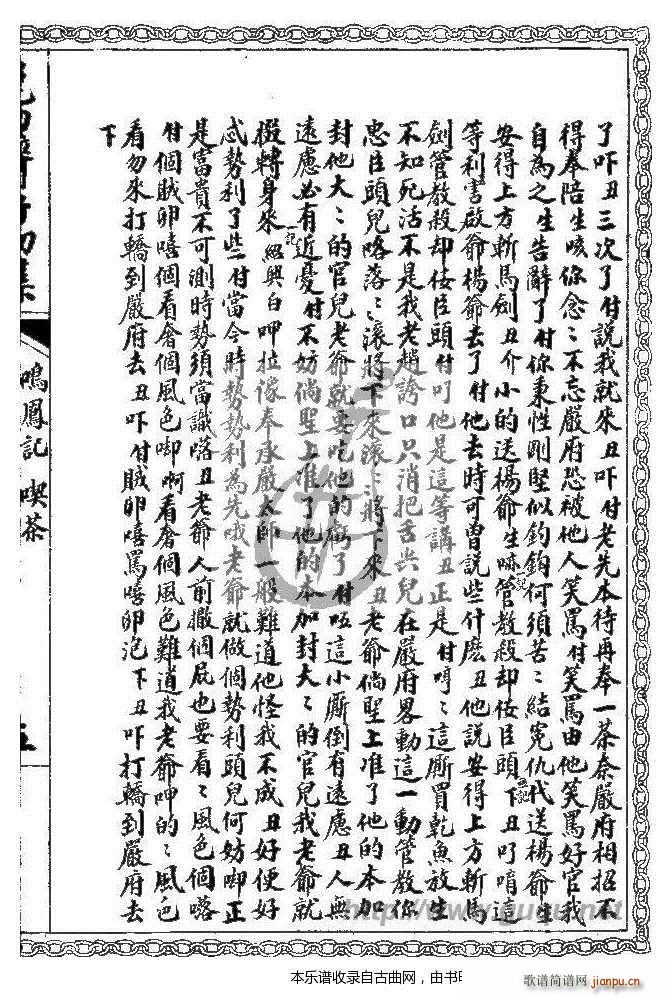 了吓丑三次了付說我就來丑吓付老先本待再奉一茶奈嚴府相招不
得奉陪生咳你念〻不忘嚴府恐被他人笑罵付笑罵由他笑罵好官我
自為之生告辭了付你秉性剛堅似鈞鈎何須苦〻結冤仇代送楊爺生
安得上方斬馬劍丑介小的送楊爺生嘛管教殺却佞臣頭下丑叮唷這
等利害啟爺楊爺去了付他去時可曾說些什麽丑他說安得上方斬馬
劍管教殺却佞臣頭付叮他是這等講丑正是付哼〻這厮買乾魚放生
不知死活不是我老趙誇口只消把舌尖兒在嚴府畧動這一動管教你
忠臣頭兒咯落〻滾將下來滾〻將下來丑老爺倘聖上准了他的本加
封他大〻的官兒老爺就要吃他的虧了付呸這小厮倒有遠慮丑人無
遠慮必有近憂付不妨倘聖上准了他的本加封大〻的官兒我老爺就
掇轉身來紹興白呷拉像奉承嚴太師一般難道他怪我不成丑好便好
忒勢利了些付當今時勢勢利為先哦老爺就做個勢利頭兒何妨唧正
是富貴不可測時勢須當識咯丑老爺人前撒個屁也要看〻風色個咯
付個賊卵嘻個看奢個風色唧啊看奢個風色難道我老爺呷的〻風色
看勿來打轎到嚴府去丑吓付賊卵嘻罵嘻卵泡下丑吓打轎到嚴府去
下
鳴鳳記 喫茶
五
http://www.guqu.net
本乐谱收录自古曲网，由书
歌谱简谱网
jianpu.cn